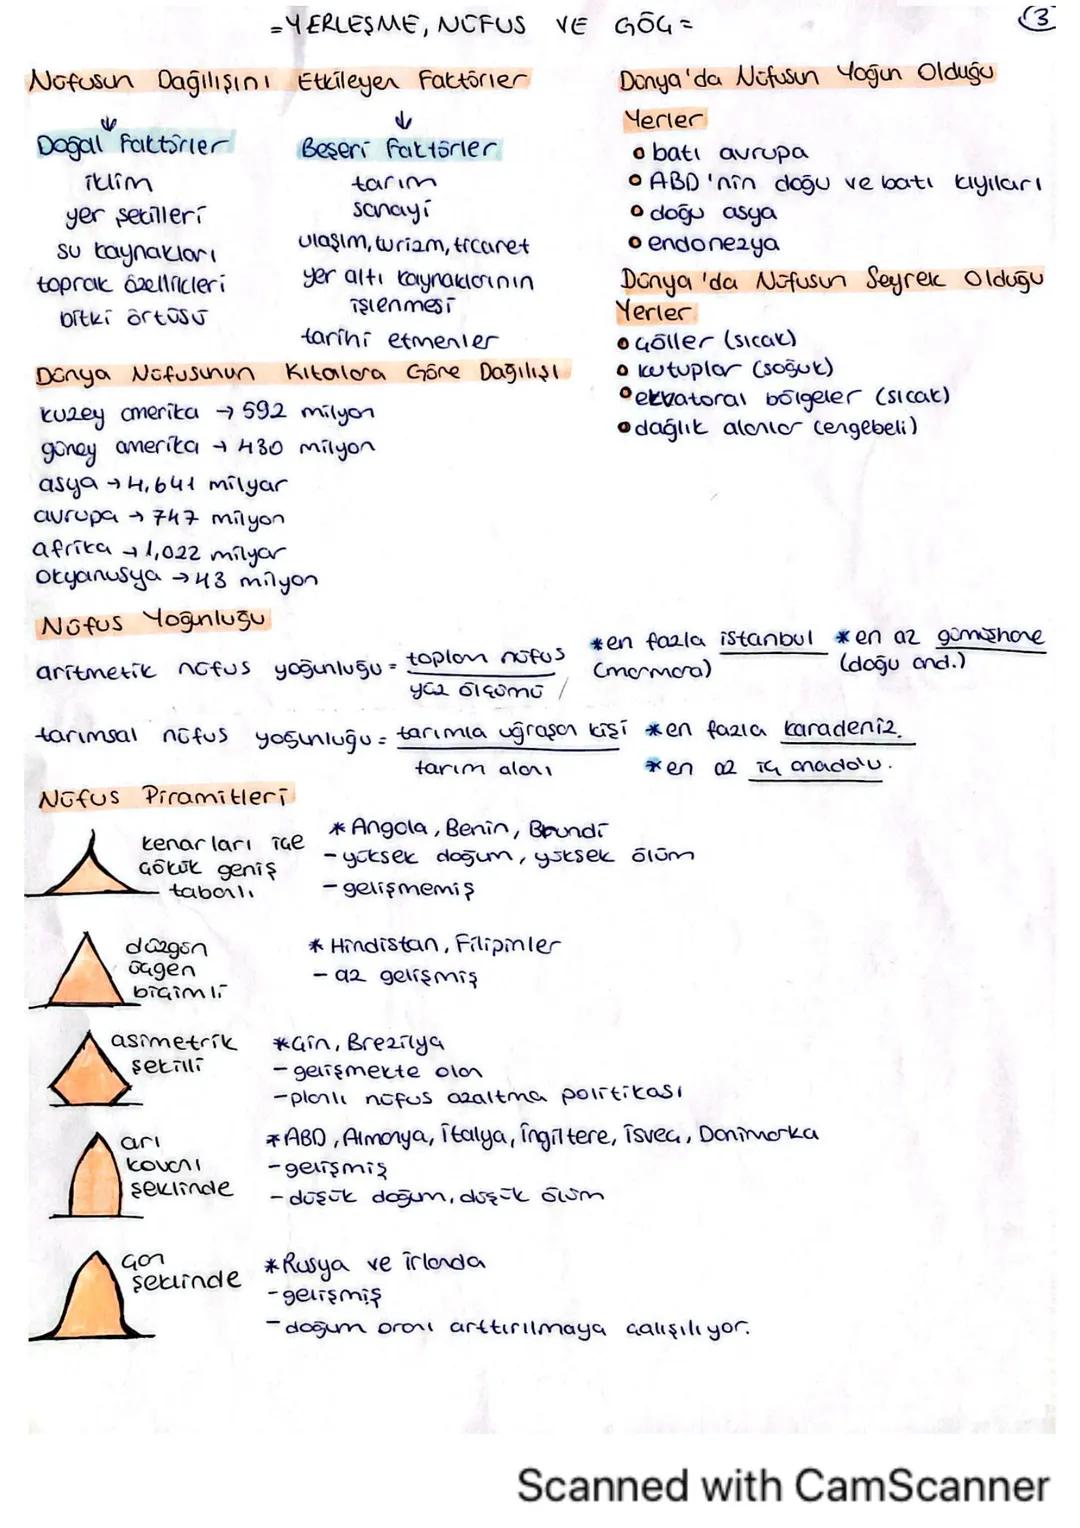 =YERLEŞME, NÜFUS VE GÖÇ=
3
Nüfusun Dağılışını Etkileyen Faktörler
Doğal Faktörler
iklim
yer şekilleri
su kaynakları
toprak özellikleri
bitki örtüsü
Beşeri Faktörler
tarım
sanayi
ulaşım, turizm, ticaret
yer altı kaynaklarının
işlenmesi
tarihi etmenler
Dünya Nüfusunun Kıtalara Göre Dağılışı
kuzey amerika → 592 milyon
güney amerika → 430 milyon
asya → 4,641 milyar
avrupa → 747 milyon
afrika → 1,022 milyar
okyanusya → 43 milyon
Dünya'da Nüfusun Yoğun Olduğu
Yerler
batı avrupa
ABD'nin doğu ve batı kıyıları
doğu asya
endonezya
Dünya'da Nüfusun Seyrek Olduğu
Yerler
çöller (sıcak)
kutuplar (soğuk)
ekvatoral bölgeler (sıcak)
dağlık alanlar (engebeli)
Nüfus Yoğunluğu
aritmetik nüfus yoğunluğu = toplam nüfus / yüz ölçümü
*en fazla istanbul
(marmara)
*en az gümüşhane
(doğu and.)
tarımsal nüfus yoğunluğu = tarımla uğraşan kişi / tarım alanı
*en fazla karadeniz.
*en az iç anadolu.
Nüfus Piramitleri
kenarları içe
çökük geniş
tabanlı
*Angola, Benin, Brundi
- yüksek doğum, yüksek ölüm
- gelişmemiş
düzgün
üçgen
biçimli
* Hindistan, Filipinler
- az gelişmiş
asimetrik
şekilli
*Çin, Brezilya
- gelişmekte olan
- planlı nüfus azaltma politikası
arı
kovanı
şeklinde
*ABD, Almanya, italya, ingiltere, isveç, Danimarka
- gelişmiş
- düşük doğum, düşük ölüm
çan
şeklinde
*Rusya ve irlanda
- gelişmiş
- doğum oranı arttırılmaya çalışılıyor.
Scanned with CamScanner